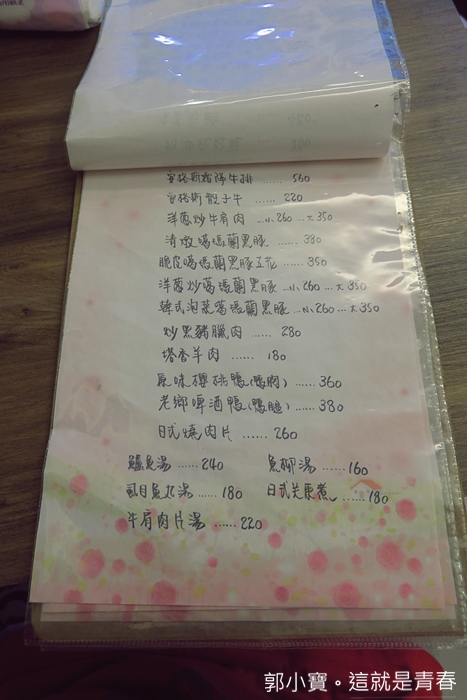 安格斯霜降牛排 ...... 560
安格斯骰子牛 ...... 220
洋蔥炒牛肩肉 ...小260 ...大350
清燉噶瑪蘭黑豚 ...... 380
脆皮噶瑪蘭黑豚五花 ...... 350
洋蔥炒噶瑪蘭黑豚 ...小260 ...大350
韓式泡菜噶瑪蘭黑豚 ...小260 ...大350
炒黑豬臘肉 ...... 280
塔香羊肉 ...... 180
原味櫻桃鴨(鴨胸) ...... 360
老鄉啤酒鴨(鴨腿) ...... 380
日式燒肉片 ....... 260
鱸魚湯 ...... 240 魚柳湯 ...... 160
虱目魚丸湯 ...... 180 日式关東煮 ...... 180
牛肩肉片湯 ...... 220
郭小寶。這就是青春